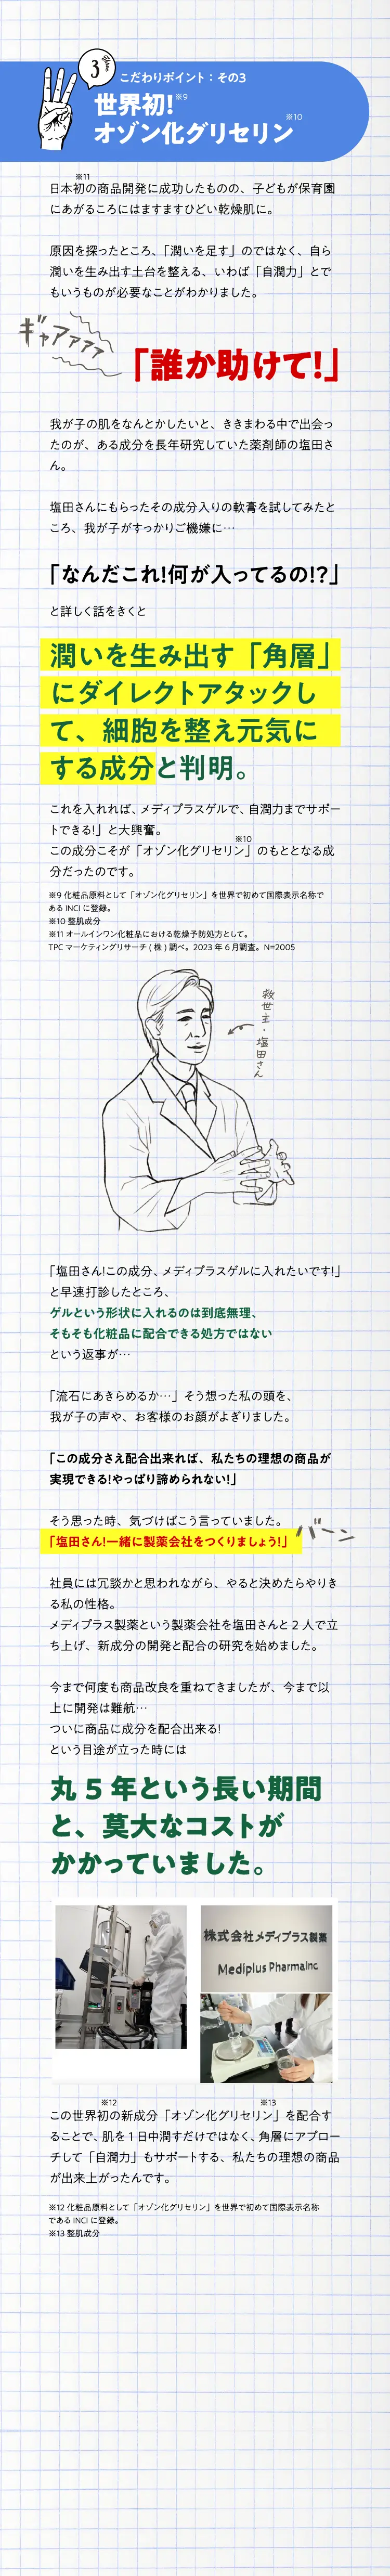 3
こだわりポイント：その3
世界初!※9
オゾン化グリセリン※10
※11
日本初の商品開発に成功したものの、子どもが保育園
にあがるころにはますますひどい乾燥肌に。
原因を探ったところ、「潤いを足す」のではなく、自ら
潤いを生み出す土台を整える、いわば「自潤力」とで
もいうものが必要なことがわかりました。
ギャアァァァ
「誰か助けて!」
我が子の肌をなんとかしたいと、ききまわる中で出会っ
たのが、ある成分を長年研究していた薬剤師の塩田さ
ん。
塩田さんにもらったその成分入りの軟膏を試してみたと
ころ、我が子がすっかりご機嫌に…
「なんだこれ!何が入ってるの!?」
と詳しく話をきくと
潤いを生み出す「角層」
にダイレクトアタックし
て、細胞を整え元気に
する成分と判明。
これを入れれば、メディプラスゲルで、自潤力までサポー
トできる!」と大興奮。
この成分こそが「オゾン化グリセリン※10」のもととなる成
分だったのです。
※9 化粧品原料として「オゾン化グリセリン」を世界で初めて国際表示名称で
ある INCI に登録。
※10 整肌成分
※11 オールインワン化粧品における乾燥予防処方として。
TPC マーケティングリサーチ ( 株 ) 調べ。2023 年 6 月調査。N=2005
救世主・塩田さん
「塩田さん!この成分、メディプラスゲルに入れたいです!」
と早速打診したところ、
ゲルという形状に入れるのは到底無理、
そもそも化粧品に配合できる処方ではない
という返事が…
「流石にあきらめるか…」そう想った私の頭を、
我が子の声や、お客様のお顔がよぎりました。
「この成分さえ配合出来れば、私たちの理想の商品が
実現できる!やっぱり諦められない!」
そう思った時、気づけばこう言っていました。
バーン
「塩田さん!一緒に製薬会社をつくりましょう!」
社員には冗談かと思われながら、やると決めたらやりき
る私の性格。
メディプラス製薬という製薬会社を塩田さんと 2 人で立
ち上げ、新成分の開発と配合の研究を始めました。
今まで何度も商品改良を重ねてきましたが、今まで以
上に開発は難航…
ついに商品に成分を配合出来る!
という目途が立った時には
丸 5 年という長い期間
と、莫大なコストが
かかっていました。
株式会社メディプラス製薬
Mediplus PharmaInc
この世界初の※12新成分「オゾン化グリセリン※13」を配合す
ることで、肌を 1 日中潤すだけではなく、角層にアプロー
チして「自潤力」もサポートする、私たちの理想の商品
が出来上がったんです。
※12 化粧品原料として「オゾン化グリセリン」を世界で初めて国際表示名称
である INCI に登録。
※13 整肌成分